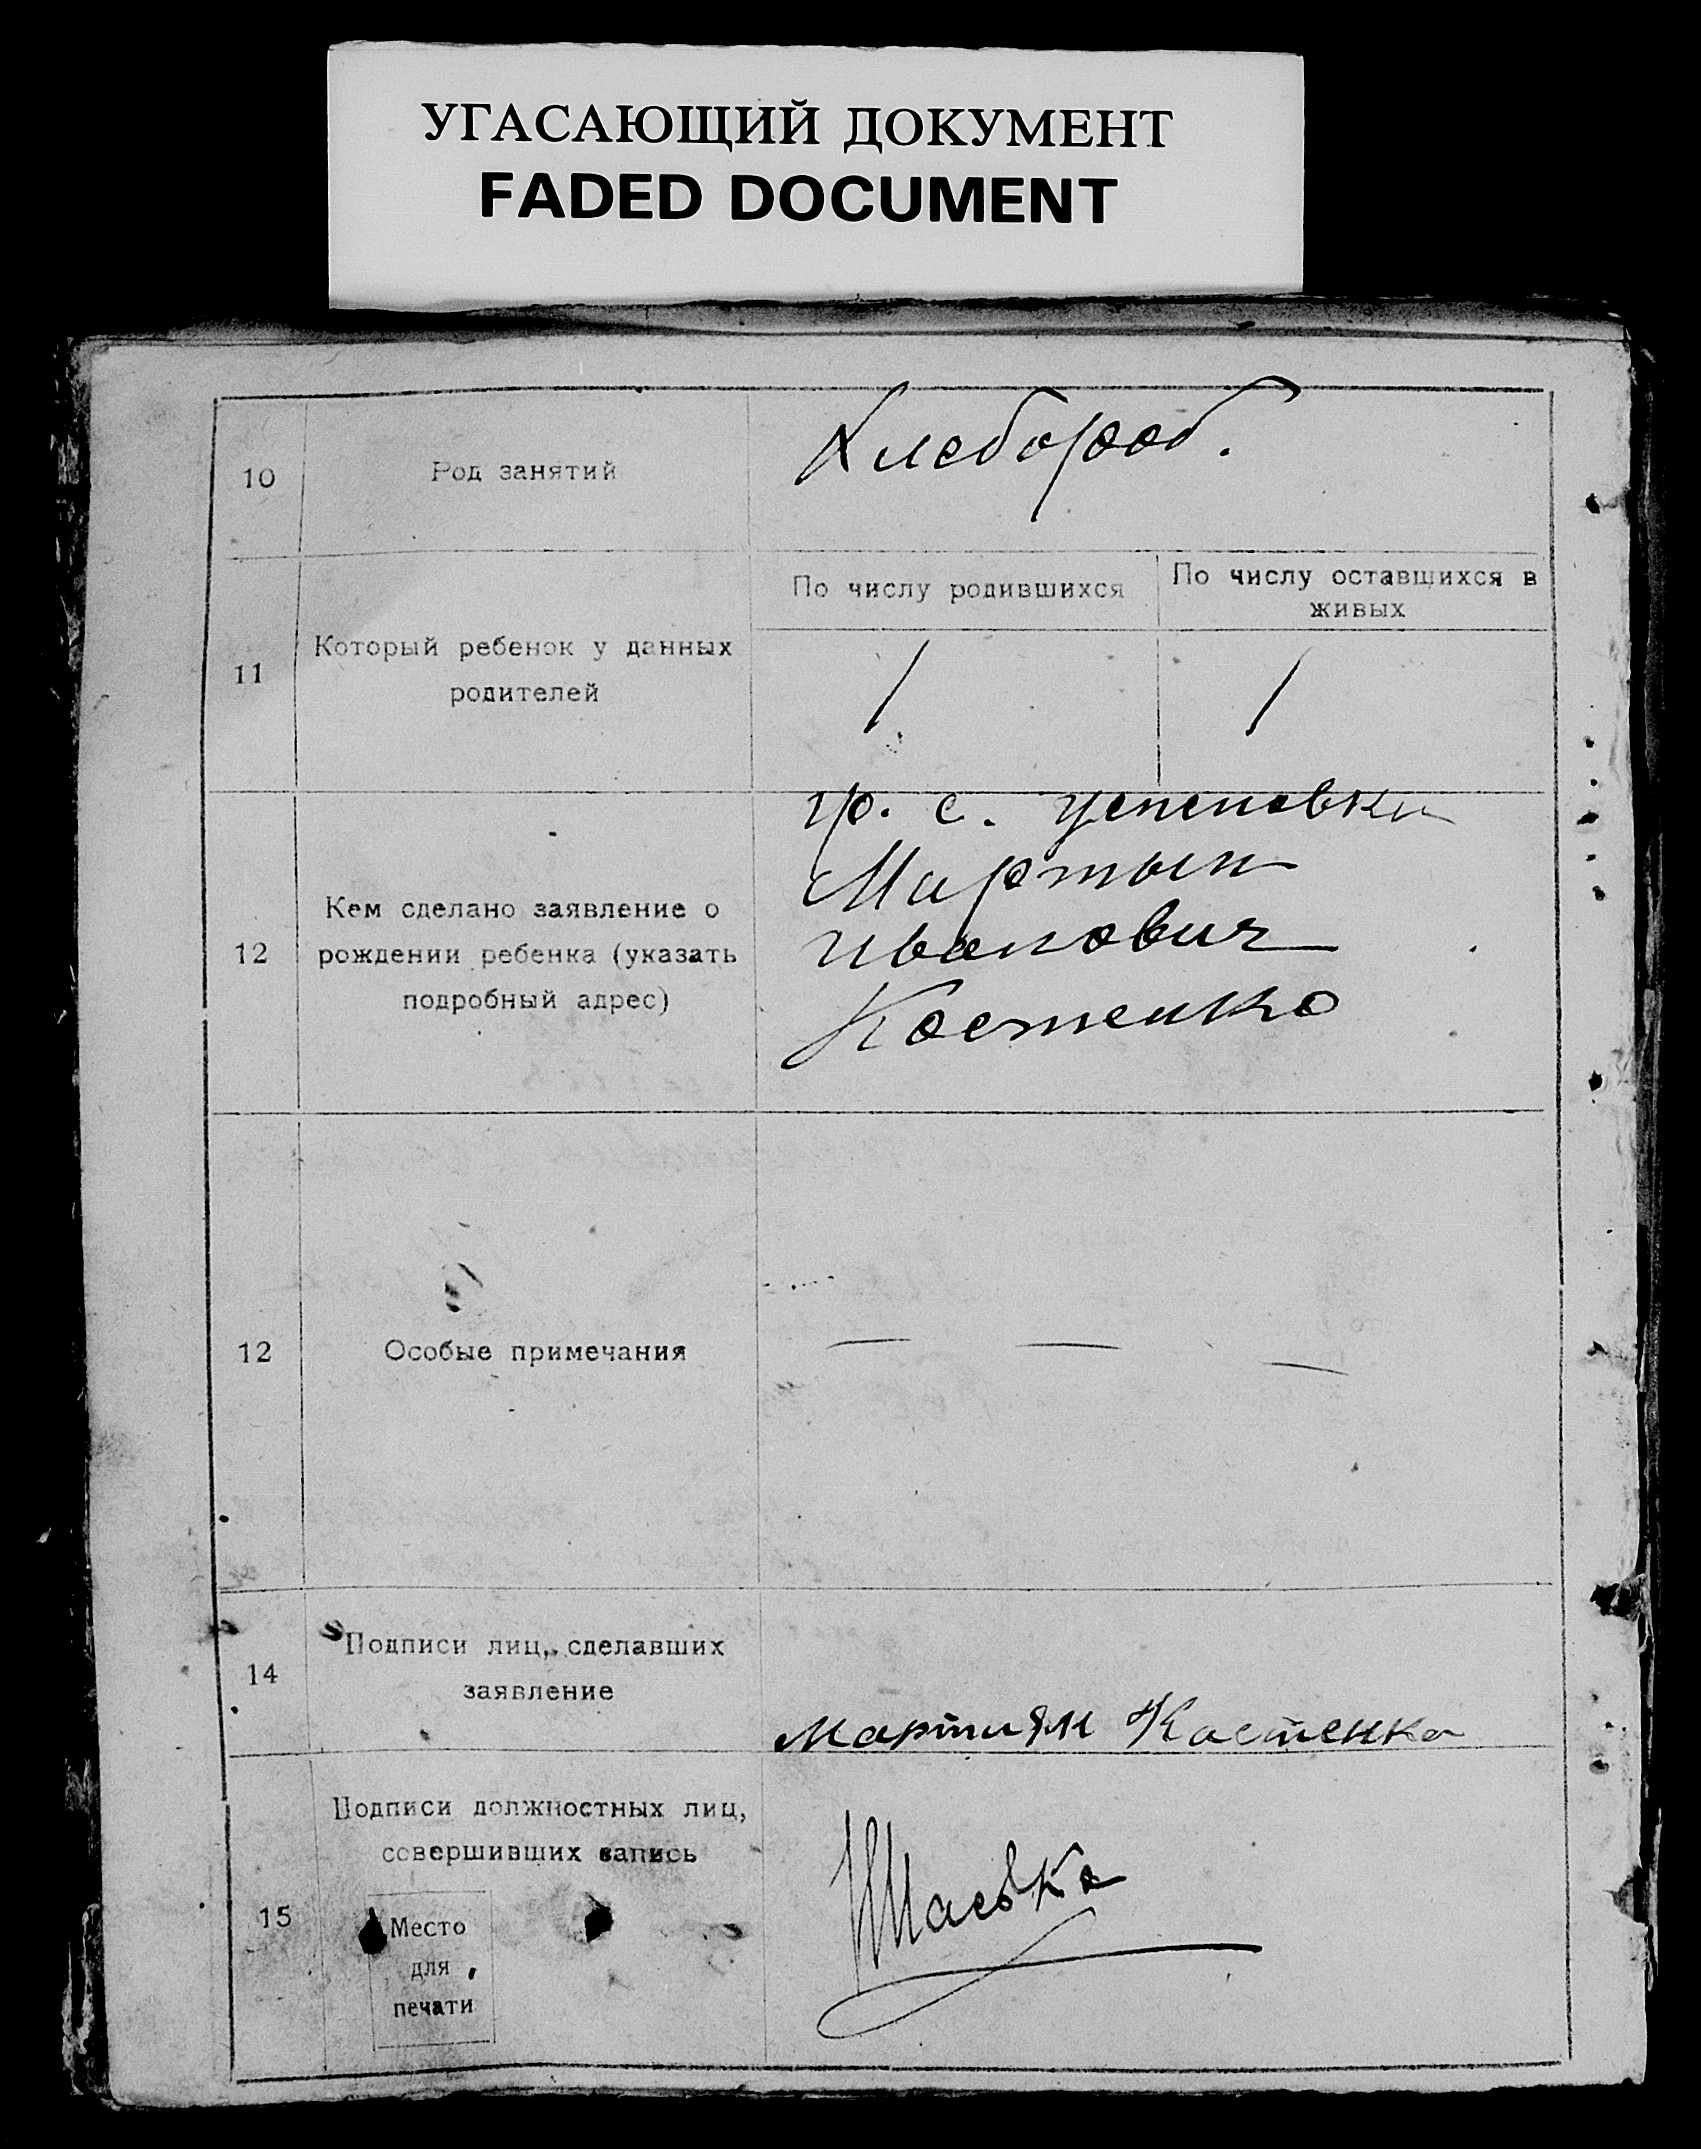 УГАСАЮЩИЙ ДОКУМЕНТ
FADED DOCUMENT
10
Род занятий
Хлебороб.
11
Который ребенок у данных
родителей
По числу родившихся
По числу оставщихся в
живых
1
1
12
Кем сделано заявление о
рождении ребенка (указать
подробный адрес)
гр. с. Успеновки
Мартын
Иванович
Костенко
12
Особые примечания
— — —
14
Подписи лиц, сделавших
заявление
Костенко
15
Подписи должностных лиц,
совершивших запись
Место
для
печати